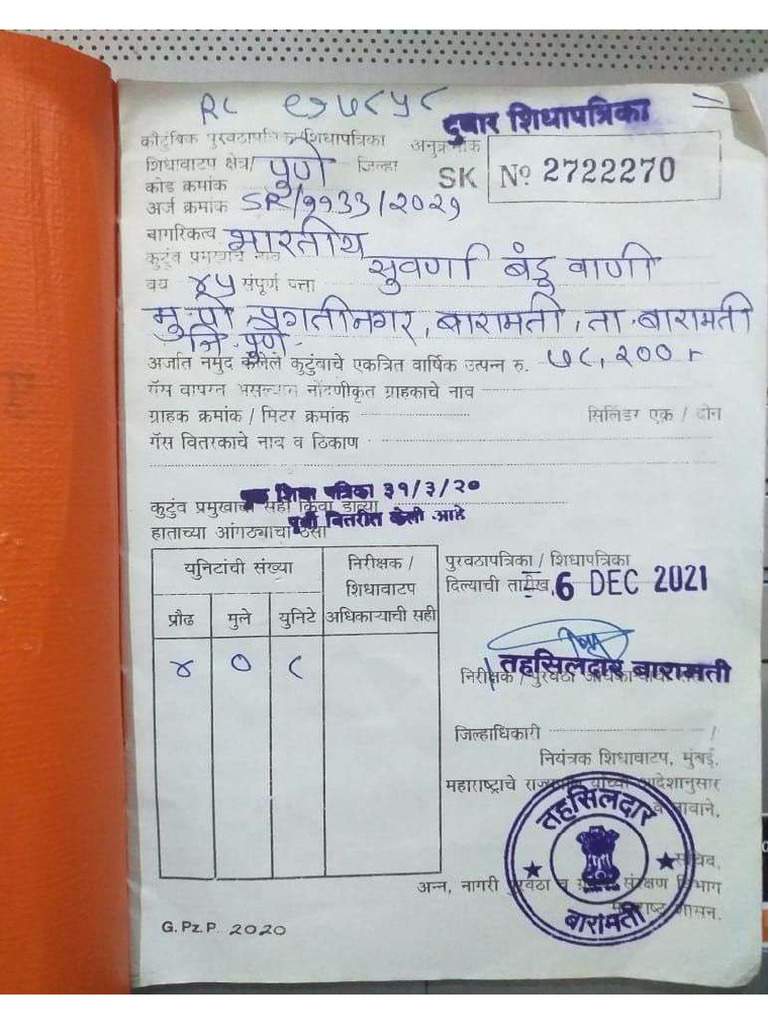 RC ९७७८५८
दुबार शिधापत्रिका
कौटुंबिक पुरवठापत्रिका/शिधापत्रिका अनुक्रमांक
शिधावाटप क्षेत्र/ पुणे जिल्हा
SK No 2722270
कोड क्रमांक
अर्ज क्रमांक SR/११३३/२०२१
नागरिकत्व भारतीय
कुटुंब प्रमुखाचे नाव सुवर्णा बंडू वाणी
वय ४५ संपूर्ण पत्ता
मु.पो. प्रगतीनगर, बारामती, ता. बारामती
जि. पुणे
अर्जात नमुद केलेले कुटुंबाचे एकत्रित वार्षिक उत्पन्न रु. ७८,२००
गॅस वापरत असल्यास नोंदणीकृत ग्राहकाचे नाव
ग्राहक क्रमांक / मिटर क्रमांक सिलिंडर एक / दोन
गॅस वितरकाचे नाव व ठिकाण
शिधा पत्रिका ३१/३/२०
पूर्वी वितरीत केली आहे
कुटुंब प्रमुखाची सही किंवा डाव्या
हाताच्या आंगठ्याचा ठसा
युनिटांची संख्या
निरीक्षक /
शिधावाटप
अधिकाऱ्याची सही
प्रौढ मुले युनिटे
४ ० ८
पुरवठापत्रिका / शिधापत्रिका
दिल्याची तारीख 6 DEC 2021
तहसिलदार बारामती
निरीक्षक / पुरवठा
जिल्हाधिकारी /
नियंत्रक शिधावाटप, मुंबई.
महाराष्ट्राचे राज्यपाल यांच्या आदेशानुसार
व नावाने,
तहसिलदार
बारामती
सचिव,
अन्न, नागरी पुरवठा व ग्राहक संरक्षण विभाग
महाराष्ट्र शासन.
G.Pz.P. 2020